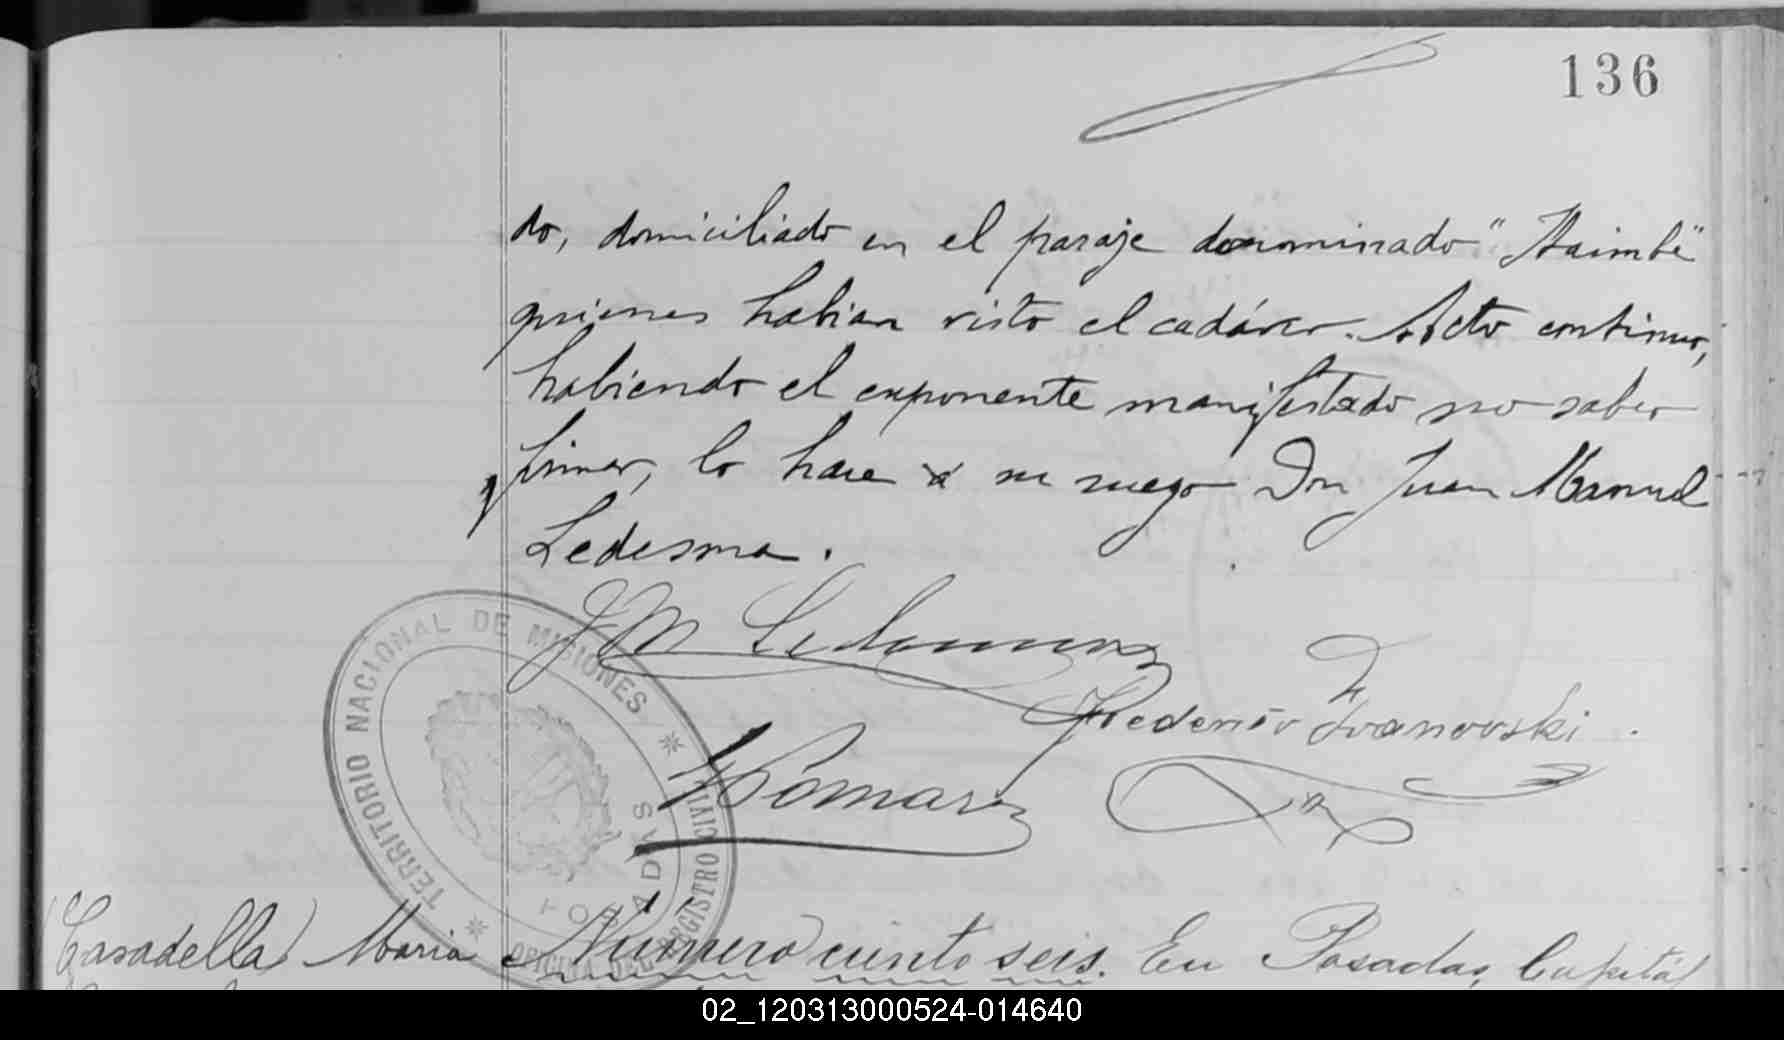 136
do, domiciliado en el paraje denominado "Itaimbé"
quienes habian visto el cadáver. Acto continuo,
habiendo el exponente manifestado no saber
firmar, lo hace á su ruego Don Juan Manuel
Ledesma.
J M Ledesma
Federico Ivanovski
TERRITORIO NACIONAL DE MISIONES
OFICINA DEL REGISTRO CIVIL
POSADAS
Casadella Maria
Número ciento seis. En Posadas, Capital
02_120313000524-014640